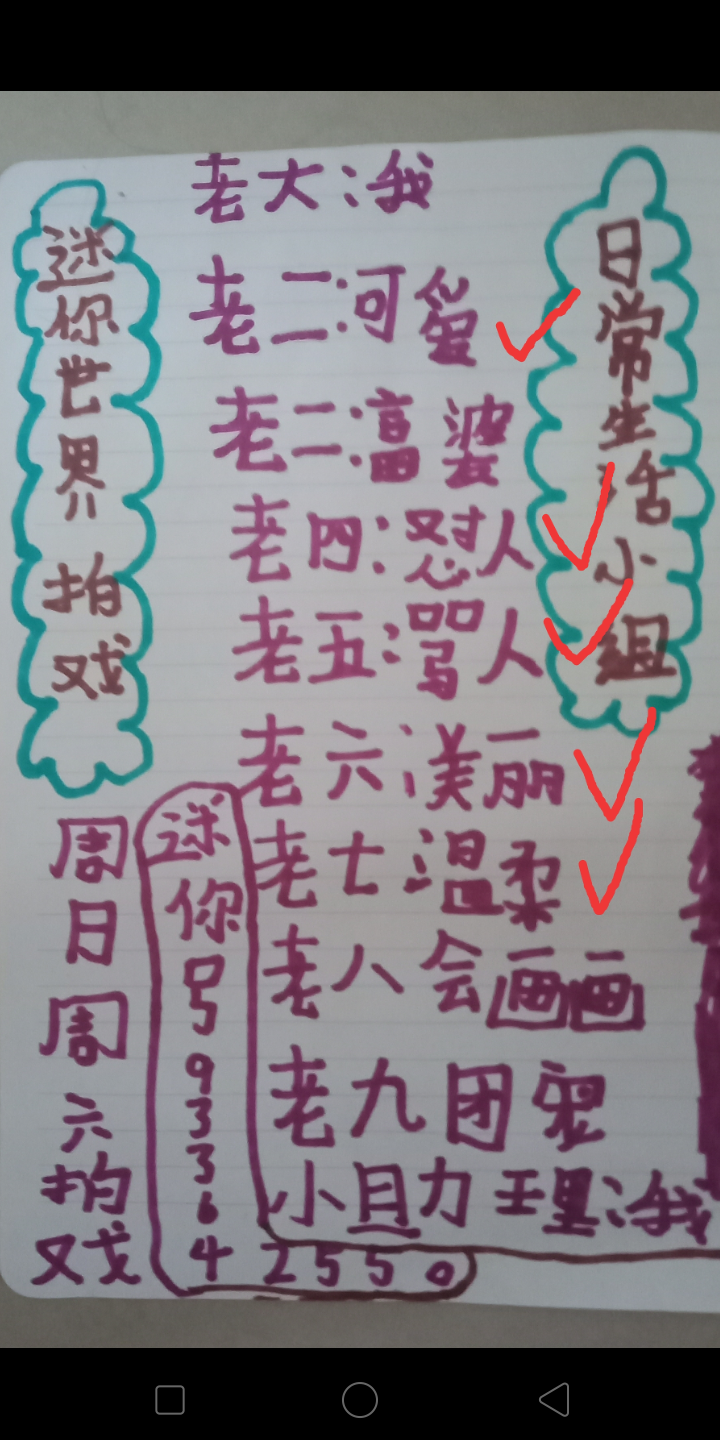 迷你世界拍戏
老大:我
老二:可爱
老二:富婆
老四:怼人
老五:骂人
老六:美丽
老七:温柔
老八会画画
老九团宠
小助力理:我
日常生活小组
周日周六拍戏
迷你号933642550